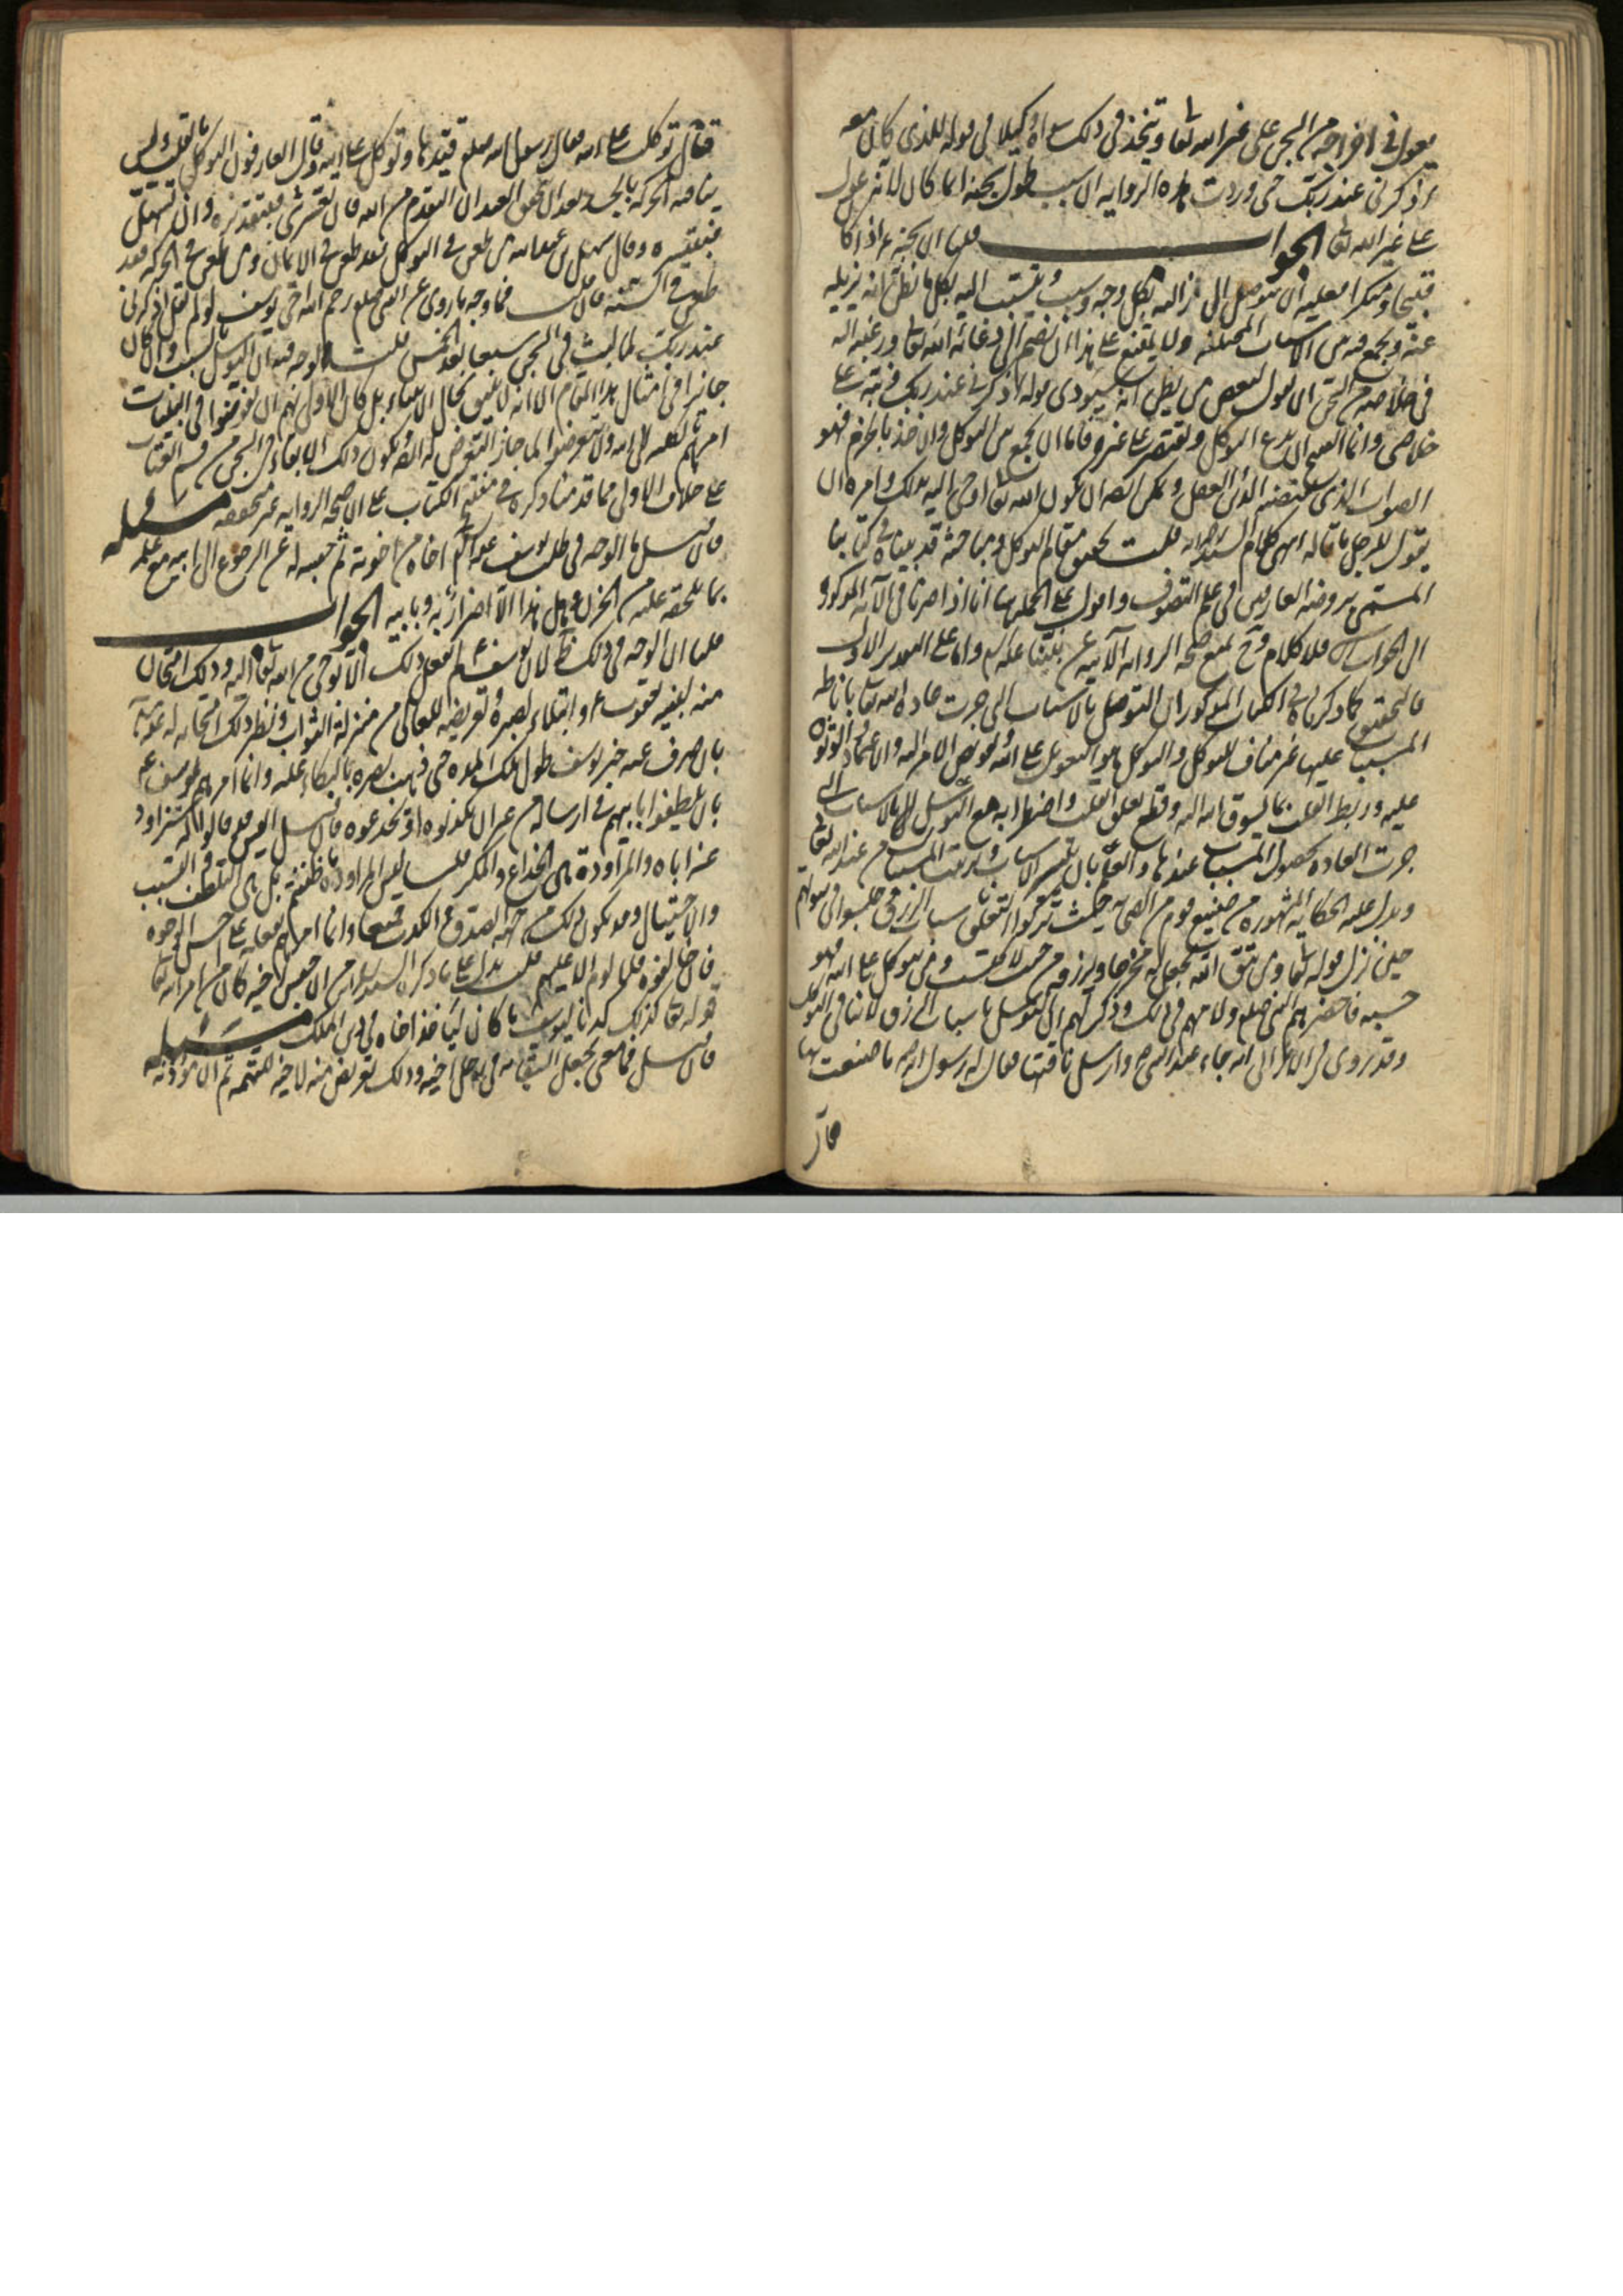 يعول في اخراجه من السجن على غير الله تعا ويتخذ في ذلك سواه وكيلا في قوله للذي كان معه
اذكرني عند ربك حتى وردت هذه الرواية ان سبب طول سجنه انما كان لانه عول
على غير الله تعا الجواب قلنا ان سجنه ع اذا كان
قبيحا ومنكرا فعليه ان يتوصل الى ازالته بكل وجه وسبب ويتشبث اليه بكل ما يظن انه يزيله
عنه ويجمع فيه من الاسباب المختلفة ولا يمتنع على هذا ان يضم الى دعائه الله تعا ورغبته اليه
في خلاصه من السجن ان يقول لبعض من يظن انه سيؤدي قوله اذكرني عند ربك ونبه على
خلاصي وانما القبيح ان يدع التوكل ويقتصر على غيره فاما ان يجمع بين التوكل والاخذ بالحزم فهو
الصواب الذي يقتضيه الدين والعقل ويمكن ايضا ان يكون الله تعا اوحى اليه بذلك وامره ان
يقول للرجل ما قاله انتهى كلام السيد رحمه الله قلت تحقيق مقام التوكل ومباحثه قد بيناه في كتابنا
المسمى بروضة العارفين في علم التصوف واقول على الجملة هنا انا اذا صرنا في الآية المذكورة
الى الجواب فلا كلام وح نمنع صحة الرواية الآتية عن نبينا عليه السلم واما على التقدير الاول
فالتحقيق كما ذكرناه في الكتاب المذكور ان التوصل بالاسباب التي جرت عادة الله تعا باناطة
المسبب عليها غير مناف للتوكل والتوكل هو التعويل على الله وتفويض الامر اليه والاعتماد والوثوق
عليه وربط القلب بما يسوق الله اليه وقطع تعلق القلب واضطرابه مع التوسل اليها بالاسباب التي
جرت العادة بحصول المسببات عندها والعلم بان تيسر الاسباب وترتب المسببات من عند الله تعا
ويدل عليه الحكاية المشهورة من صنيع قوم من الصحابة حيث تركوا التعلق باسباب الرزق وجلسوا في بيوتهم
حين نزل قوله تعا ومن يتق الله يجعل له مخرجا ويرزقه من حيث لا يحتسب ومن يتوكل على الله فهو
حسبه فاحضرهم النبي صلعم ولامهم في ذلك وذكر لهم ان التوسل باسباب الرزق لا ينافي التوكل
وقد روى في الاعرابي انه جاء عند النبي ص وارسل ناقته فقال له رسول الله ما صنعت بها
قال
فقال توكلت على الله فقال رسول الله صلعم قيدها وتوكل على الله وقال العارفون التوكل بالقلب وليس
ينافيه الحركة بالجسد بعد ان تحقق العبد ان التقدم من الله فان تعسر شيء فبتقديره وان تسهل
فبتيسيره وقال سهل بن عبد الله من طعن في التوكل فقد طعن في الايمان ومن طعن في الحركة فقد
طعن في السنة فان قلت فما وجه ما روى عن النبي صلعم رحم الله اخي يوسف لو لم يقل اذكرني
عند ربك لما لبث في السجن سبعا بعد الخمس قلت الوجه فيه ان التوسل بالسبب وان كان
جائزا في امثال هذا المقام الا انه لا يليق بحال الانبياء بل كان الاولى بهم ان يفوضوا في البليات
امرهم بالكلية الى الله ولا يتعرضوا لما جاز التعرض له لغيرهم فيكون ذلك الابقاء في السجن من قسم العتاب
على خلاف الاولى مما قدمنا ذكره في مفتتح الكتاب على ان صحة الرواية غير محققة مسئلة
فان قيل ما الوجه في طلب يوسف عليه السلم اخاه من اخوته ثم حبسه له عن الرجوع الى ابيه مع علمه
بما يلحقه عليه من الحزن وهل هذا الا اضرار به وبابيه الجواب
قلنا ان الوجه في ذلك ظ لان يوسف ع لم يفعل ذلك الا بوحي من الله تعا اليه وذلك امتحان
منه لنبيه يعقوب ع وابتلاء لصبره وتعريضه للعالي من منزلة الثواب ونظير ذلك امتحانه له تعا
بان صرف عنه خبر يوسف طول تلك المدة حتى ذهب بصره بالبكاء عليه وانما امرهم يوسف ع
بان يلطفوا بابيهم في ارساله من غير ان يكذبوه او يخدعوه فان قيل اليس قد قالوا له سنراود
عنه اباه والمراودة هي الخداع والمكر قلنا ليس المراودة ما ظننتم بل هي التلطف والتسبب
والاحتيال وقد يكون ذلك من جهة الصدق والكذب جميعا وانما امرهم بفعله على احسن الوجوه
فان خالفوه فلا لوم الا عليهم قلت يدل على ما ذكره السيد من ان حبس اخيه كان من امر الله تعا
قوله تعا كذلك كدنا ليوسف ما كان ليأخذ اخاه في دين الملك مسئلة
فان قيل فما معنى جعل السقاية في رحل اخيه وذلك تعريض منه لاخيه للتهمة ثم ان مؤذنه